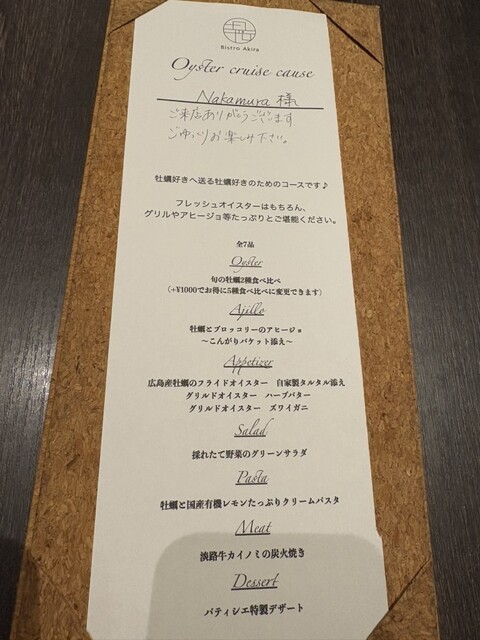 Bistro Akira
Oyster cruise cause
Nakamura 様
ご来店ありがとうございます
ごゆっくりお楽しみ下さい。
牡蠣好きへ送る牡蠣好きのためのコースです♪
フレッシュオイスターはもちろん、
グリルやアヒージョ等たっぷりとご堪能ください。
全7品
Oyster
旬の牡蠣2種食べ比べ
(+¥1000でお得に5種食べ比べに変更できます)
Ajillo
牡蠣とブロッコリーのアヒージョ
～こんがりバケット添え～
Appetizer
広島産牡蠣のフライドオイスター 自家製タルタル添え
グリルドオイスター ハーブバター
グリルドオイスター ズワイガニ
Salad
採れたて野菜のグリーンサラダ
Pasta
牡蠣と国産有機レモンたっぷりクリームパスタ
Meat
淡路牛カイノミの炭火焼き
Dessert
パティシエ特製デザート